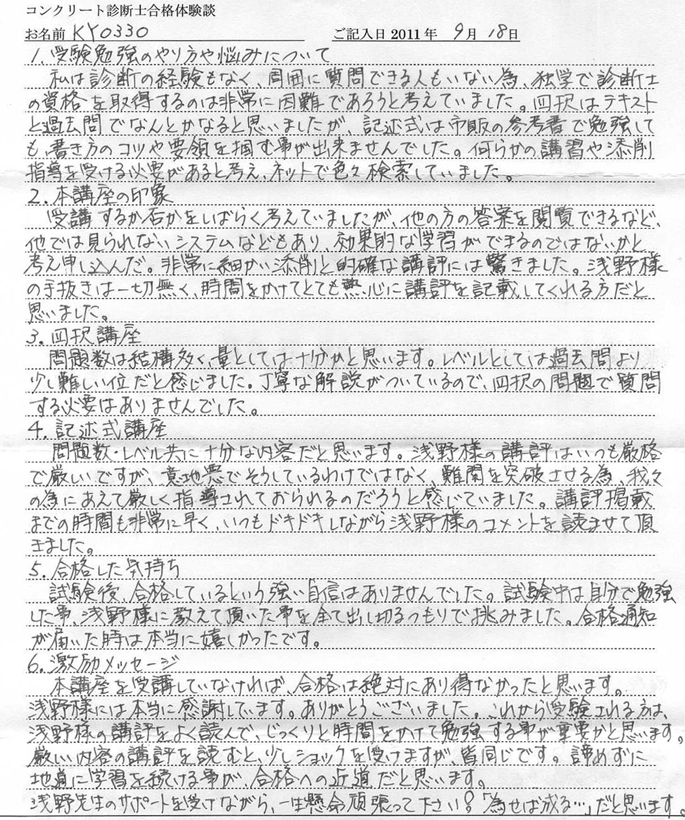 コンクリート診断士合格体験談
お名前 KY0330 ご記入日 2011年 9月 18日
1.受験勉強のやり方や悩みについて
私は診断の経験もなく、周囲に質問できる人もいない為、独学で診断士
の資格を取得するのは非常に困難であろうと考えていました。四択はテキスト
と過去問でなんとかなると思いましたが、記述式は市販の参考書で勉強して
も、書き方のコツや要領を掴む事が出来ませんでした。何らかの講習や添削
指導を受ける必要があると考え、ネットで色々検索していました。
2.本講座の印象
受講するか否かをしばらく考えていましたが、他の方の答案を閲覧できるなど、
他では見られないシステムなどもあり、効果的な学習ができるのではないかと
考え申し込んだ。非常に細かい添削と的確な講評には驚きました。浅野様
の手抜きは一切無く、時間をかけてとても熱心に講評を記載してくれる方だと
思いました。
3.四択講座
問題数は結構多く、量としては十分かと思います。レベルとしては過去問より
少し難しい位だと感じました。丁寧な解説がついているので、四択の問題で質問
する必要はありませんでした。
4.記述式講座
問題数・レベル共に十分な内容だと思います。浅野様の講評はいつも厳格
で厳しいですが、意地悪でそうしているわけではなく、難関を突破させる為、我々
の為にあえて厳しく指導されておられるのだろうと感じていました。講評掲載
までの時間も非常に早く、いつもドキドキしながら浅野様のコメントを読ませて頂
きました。
5.合格した気持ち
試験後、合格しているという強い自信はありませんでした。試験中は自分で勉強
した事、浅野様に教えて頂いた事を全て出し切るつもりで挑みました。合格通知
が届いた時は本当に嬉しかったです。
6.激励メッセージ
本講座を受講していなければ、合格は絶対にあり得なかったと思います。
浅野様には本当に感謝しています。ありがとうございました。これから受験される方は、
浅野様の講評をよく読んで、じっくりと時間をかけて勉強する事が重要かと思います。
厳しい内容の講評を読むと、少しショックを受けますが、皆同じです。諦めずに
地道に学習を続ける事が、合格への近道だと思います。
浅野先生のサポートを受けながら、一生懸命頑張って下さい!「為せば成る…」だと思います。